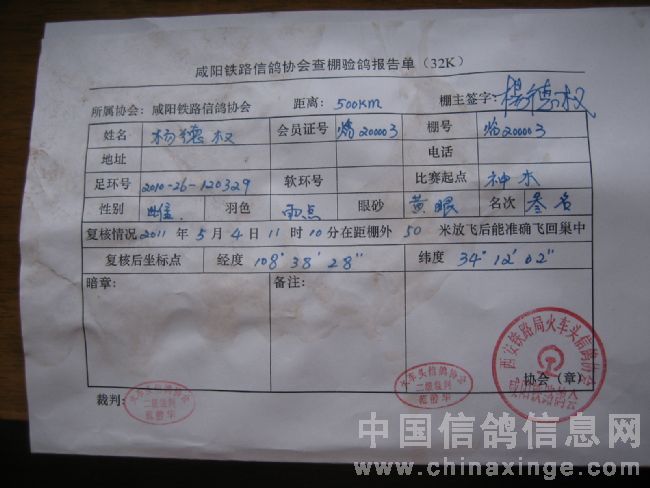 咸阳铁路信鸽协会查棚验鸽报告单（32K）
所属协会：咸阳铁路信鸽协会 距离：500KM 棚主签字：楊德权
姓名 杨德权 会员证号 临200003 棚号 临200003
地址 电话
足环号 2010-26-120329 软环号 比赛起点 神木
性别 雌 羽色 雨点 眼砂 黄眼 名次 叁名
复核情况 2011 年 5 月 4 日 11 时 10 分在距棚外 50 米放飞后能准确飞回巢中
复核后坐标点 经度 108°38′28″ 纬度 34°12′02″
暗章： 备注：
西安铁路局火车头信鸽协会
咸阳铁路鸽会
协会（章）
裁判：
火车头信鸽协会
二级裁判
火车头信鸽协会
二级裁判
中国信鸽信息网
www.chinaxinge.com